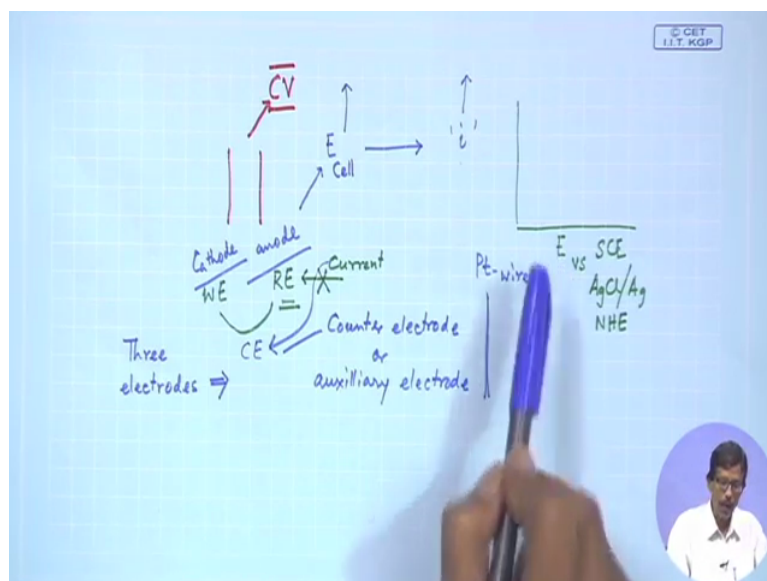 © CET
I.I.T. KGP
CV
E
Cell
'i'
Cathode
anode
WE
RE
Current
CE
Counter electrode
or
auxilliary electrode
Three
electrodes ⇒
Pt-wire
E vs SCE
AgCl/Ag
NHE